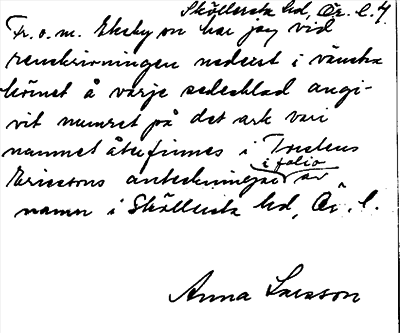 Sköllersta hd, Ör. l. 4
Fr. o. m. Ekeby sn har jag vid
renskrivningen nederst i vänstra
hörnet å varje sedesblad angi-
vit numret på det ark vari
namnet återfinnes i Torsten
i folio
Ericsons anteckningar av
namn i Sköllersta hd, Ör. l.
Anna Larsson